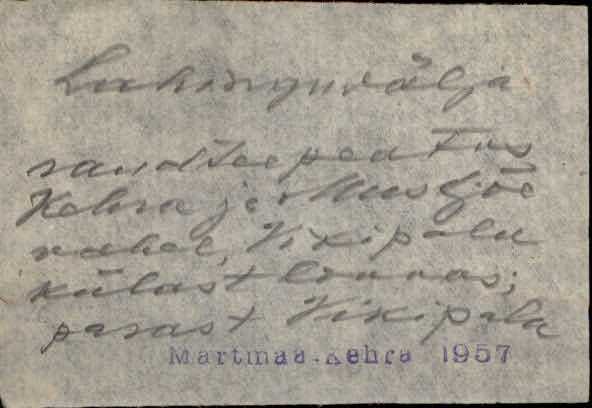 Lahinguvälja
raudteepeatus
Kehra ja Mustjõe
vahel, Vikipalu
külast lounas;
parast Vikipalu
Martmaa.Kehra 1957